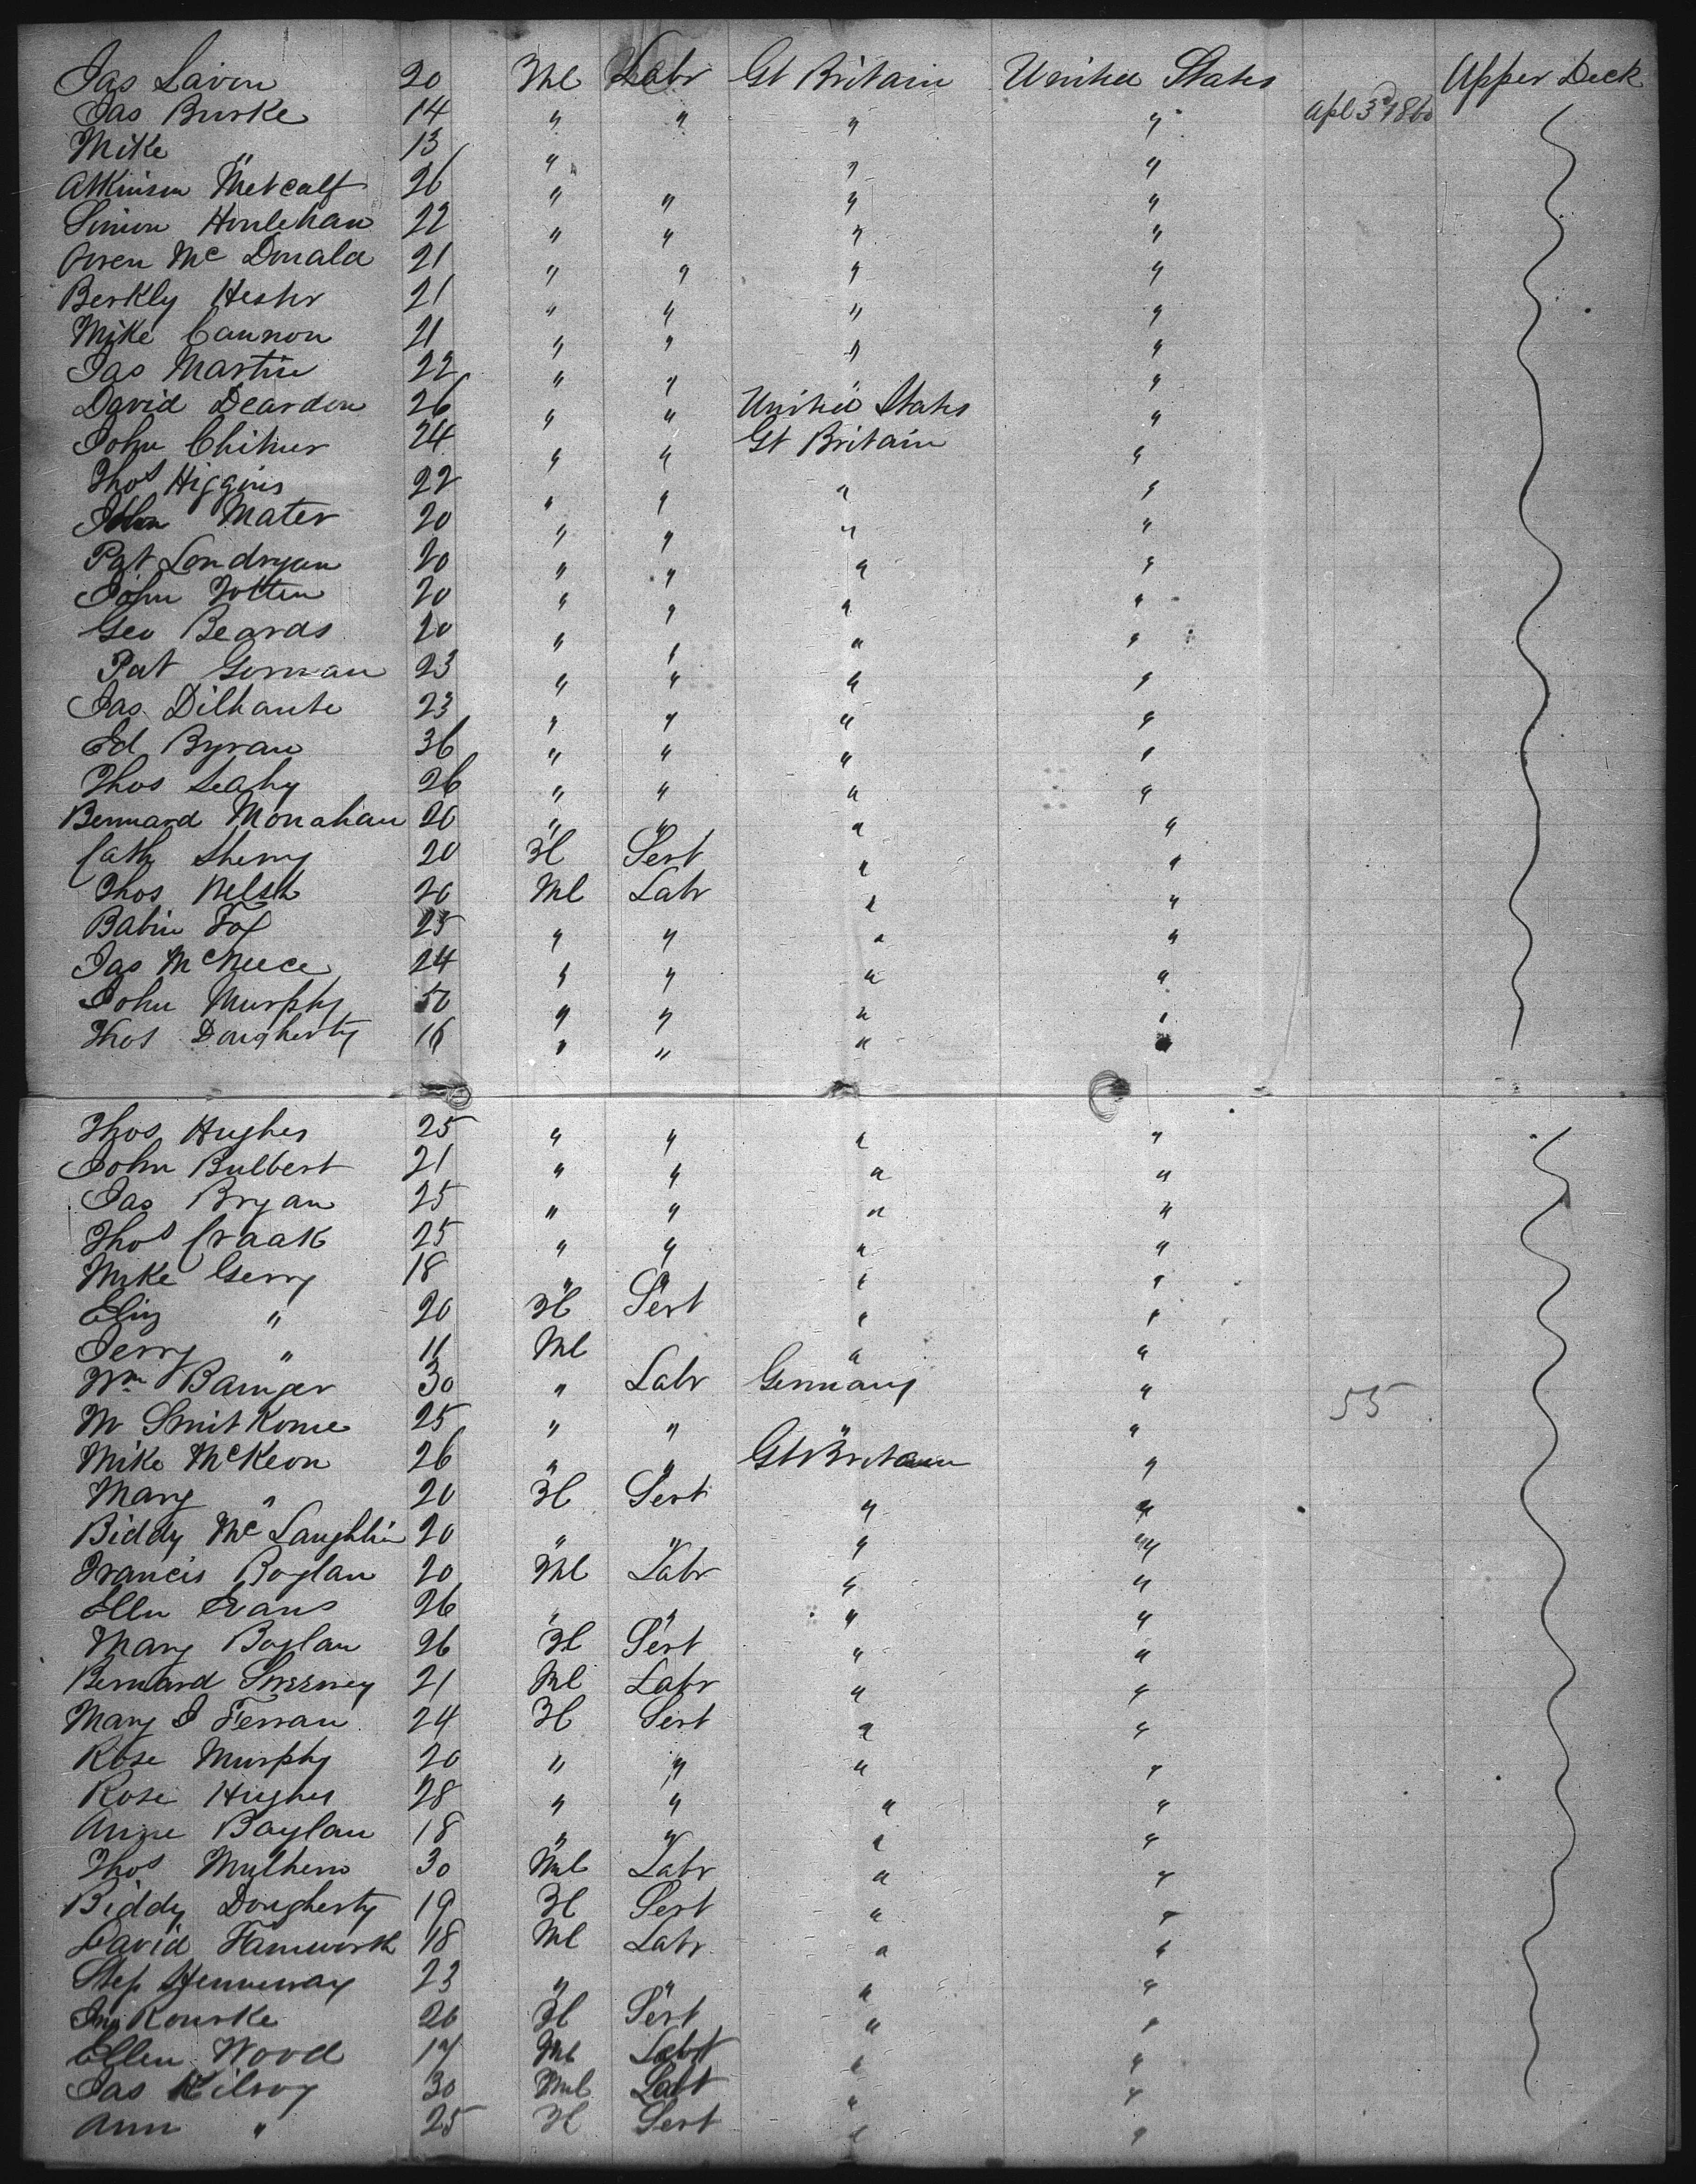 Jas Lavin 20 Ml Labr Gt Britain United States Upper Deck
Jas Burke 14 " " " " Apl 3d 1860
Mike " 13 " " "
Atkinson Metcalf 26 " " " "
Simon Honlehan 22 " " " "
Owen Mc Donald 21 " " " "
Berkly Hester 21 " " " "
Mike Cannon 21 " " " "
Jas Martin 22 " " " "
David Deardon 26 " " United States "
John Chitur 24 " " Gt Britain "
Thos Higgins 22 " " " "
John Mater 20 " " " "
Pat Londrgan 20 " " " "
John Totten 20 " " " "
Geo Beards 20 " " " "
Pat Gorman 23 " " " "
Jas Dilhante 23 " " " "
Ed Byran 36 " " " "
Thos Leahy 26 " " " "
Bernnard Monahan 20 " " " "
Cath Sherry 20 Fl Sert " "
Thos Welsh 20 Ml Labr " "
Babin Fox 25 " " " "
Jas McNeece 24 " " " "
John Murphy 50 " " " "
Thos Dougherty 16 " " " "
Thos Hughes 25 " " " "
John Bulbert 21 " " " "
Jas Bryan 25 " " " "
Thos Craak 25 " " " "
Mike Gerry 18 " " " "
Eliz " 20 Fl Sert " "
Jerry " 11 Ml " "
Wm Bamger 30 " Labr Germany " 55
M Smitkome 25 " " " "
Mike McKeon 26 " " Gt Britain "
Mary " 20 Fl Sert " "
Biddy Mc Laughlin 20 " " " "
Francis Boylan 20 Ml Labr " "
Ellen Evans 26 " " " "
Mary Boylan 26 Fl Sert " "
Bernard Sweeney 21 Ml Labr " "
Mary J Ferran 24 Fl Sert " "
Rose Murphy 20 " " " "
Rose Hughes 28 " " " "
Anne Baylan 18 " " " "
Thos Mulhern 30 Ml Labr " "
Biddy Dougherty 19 Fl Sert " "
David Farnworth 18 Ml Labr " "
Step Henneway 23 " " " "
Rourke 26 Fl Sert " "
Ellen Wood 17 Ml Labr " "
Jas Kilroy 30 Ml Labr " "
Ann " 25 Fl Sert " "